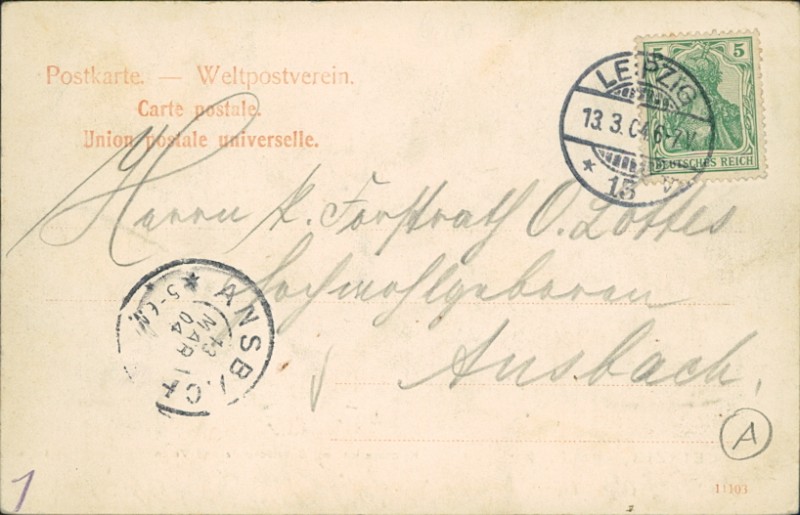 Postkarte. — Weltpostverein.
Carte postale.
Union postale universelle.
5 5
DEUTSCHES REICH
LEIPZIG
13.3.04.6-7V.
* 13
Herrn k. Forstrath O. Lottes
Hochwohlgeboren
Ansbach.
* ANSBACH
5-6N
13
MAR
04
A
1
11103